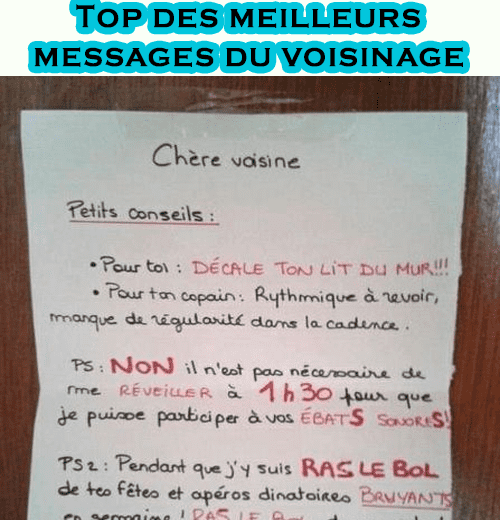 TOP DES MEILLEURS
MESSAGES DU VOISINAGE
Chère voisine
Petits conseils :
• Pour toi : DÉCALE TON LIT DU MUR!!!
• Pour ton copain : Rythmique à revoir,
manque de régularité dans la cadence.
PS : NON il n'est pas nécessaire de
me RÉVEILLER à 1h30 pour que
je puisse participer à vos ÉBATS SONORES!
PS2 : Pendant que j'y suis RAS LE BOL
de tes fêtes et apéros dinatoires BRUYANTS
en semaine ! RAS LE